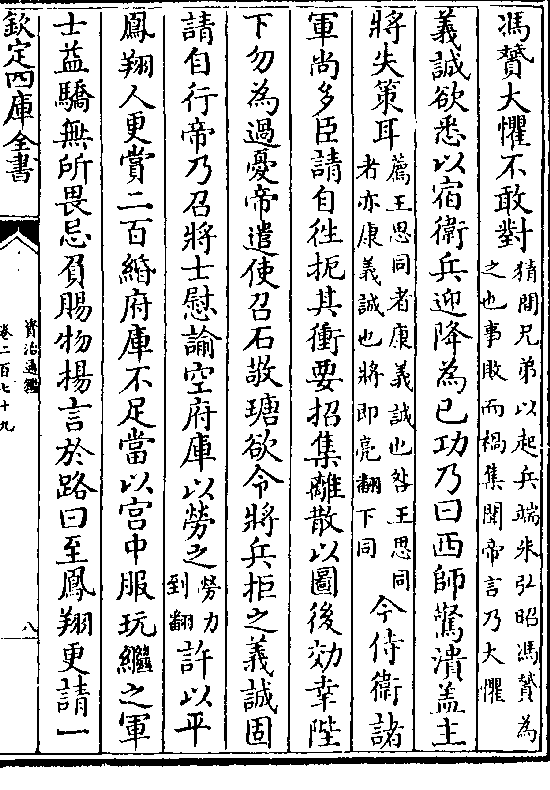 馮贇大懼不敢對猜間兄弟以起兵端朱弘昭馮贇為
之也事敗而禍集聞帝言乃大懼
義誠欲悉以宿衛兵迎降為已功乃曰西師驚潰盖主
將失策耳薦王思同者康義誠也咎王思同
者亦康義誠也將即亮翻下同今侍衛諸
軍尚多臣請自往扼其衝要招集離散以圖後効幸陛
下勿為過憂帝遣使召石敬瑭欲令將兵拒之義誠固
請自行帝乃召將士慰諭空府庫以勞之勞力
到翻許以平
鳳翔人更賞二百緡府庫不足當以宮中服玩繼之軍
士益驕無所畏忌負賜物揚言於路曰至鳳翔更請一
欽定四庫全書
資治通鑑
卷二百七十九
八